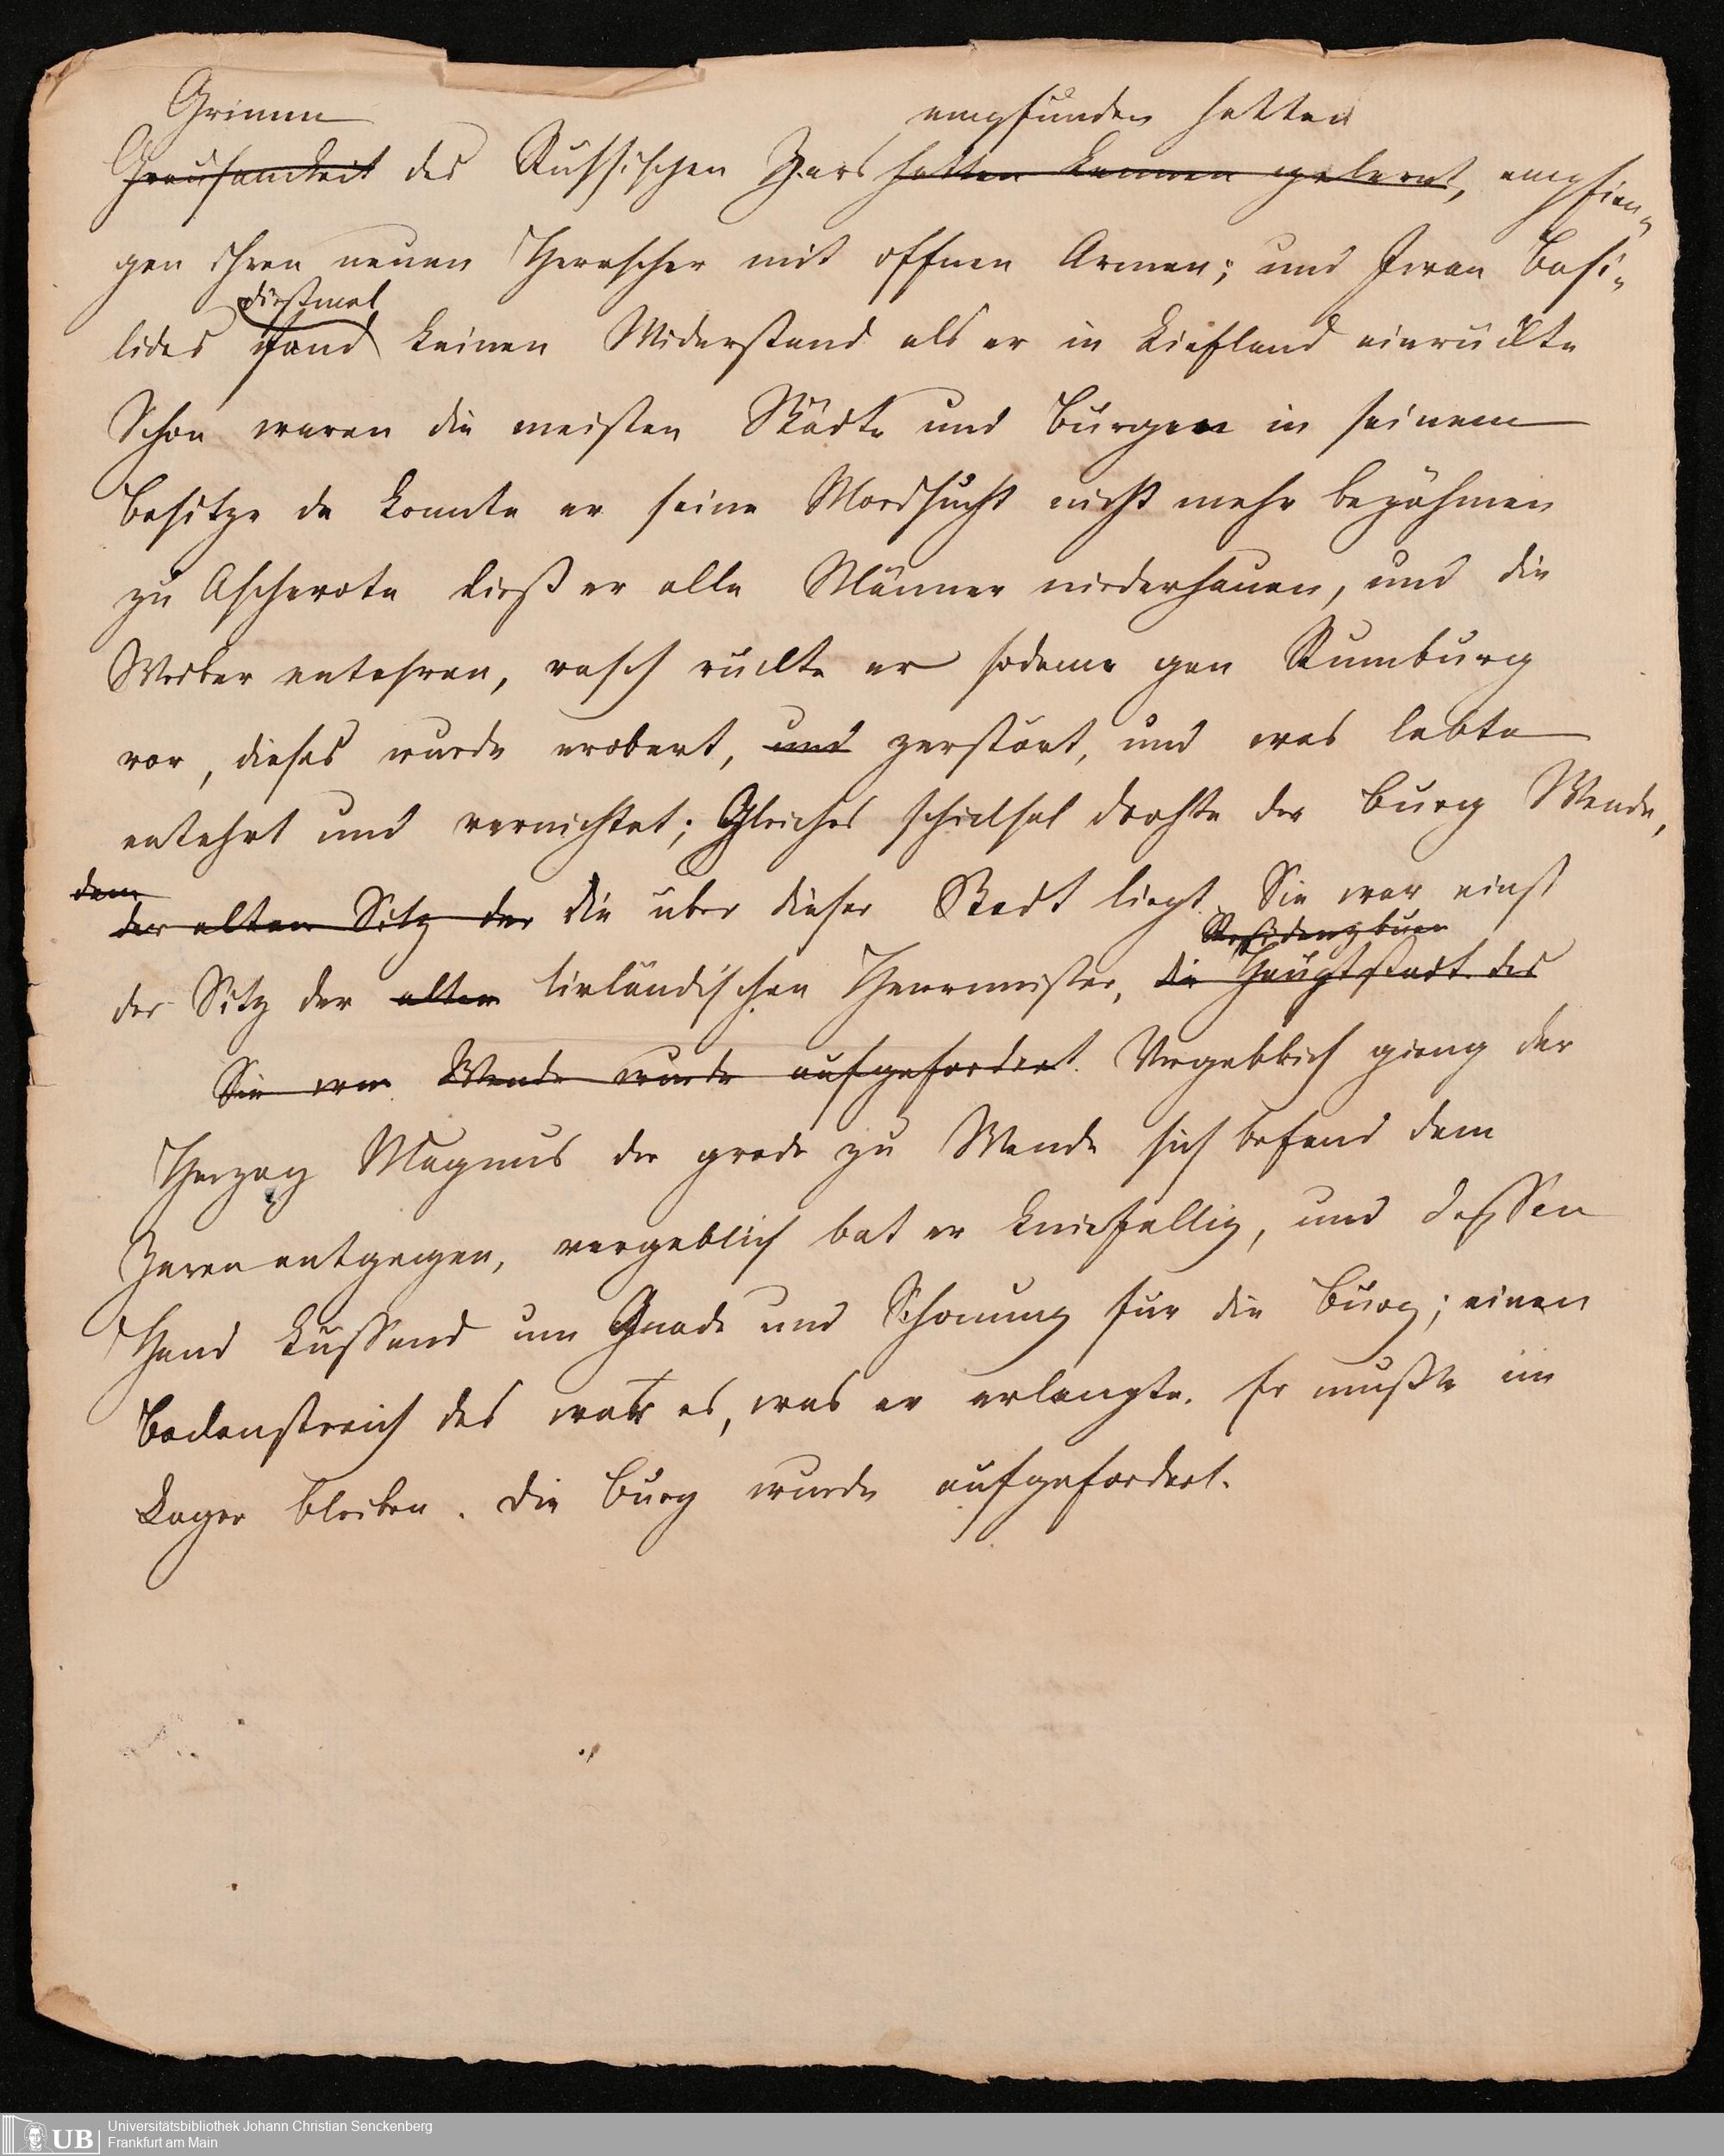 Grimm empfunden hatten
Grausamckeit des Russischen Zars hatten kennen gelernt, empfien-
gen ihren neuen Herrscher mit offnen Armen; und Iwan Basi-
diesmal
lides fand keinen Widerstand als er in Liefland einrückte
Schon waren die meisten Städte und Burgen in seinem
Besitze da konnte er seine Mordsucht nicht mehr bezähmen
zu Ascherote ließ er alle Männer niederhauen, und die
Weiber entehren, rasch rückte er sodann gen Rumburg
vor, dieses wurde erobert, und zerstört, und was lebte
entehrt und vernichtet; Gleiches schicksal drohte der Burg Wende,
dem
der alten Sitz der die über dieser Stadt liegt. Sie war einst
Residenzburg
der Sitz der alten livländischen Heermeister, die Hauptstadt des
Sie war Wende wurde aufgefordert. Vergeblich gieng der
Herzog Magnus der grade zu Wende sich befand dem
Zaren entgegen, vergeblich bat er kniefällig, und dessen
Hand küssend um Gnade und Schonung für die Burg; einen
Backenstreich das war es, was er erlangte. Er mußte im
Lager bleiben. Die Burg wurde aufgefordert.
UB Universitätsbibliothek Johann Christian Senckenberg
Frankfurt am Main